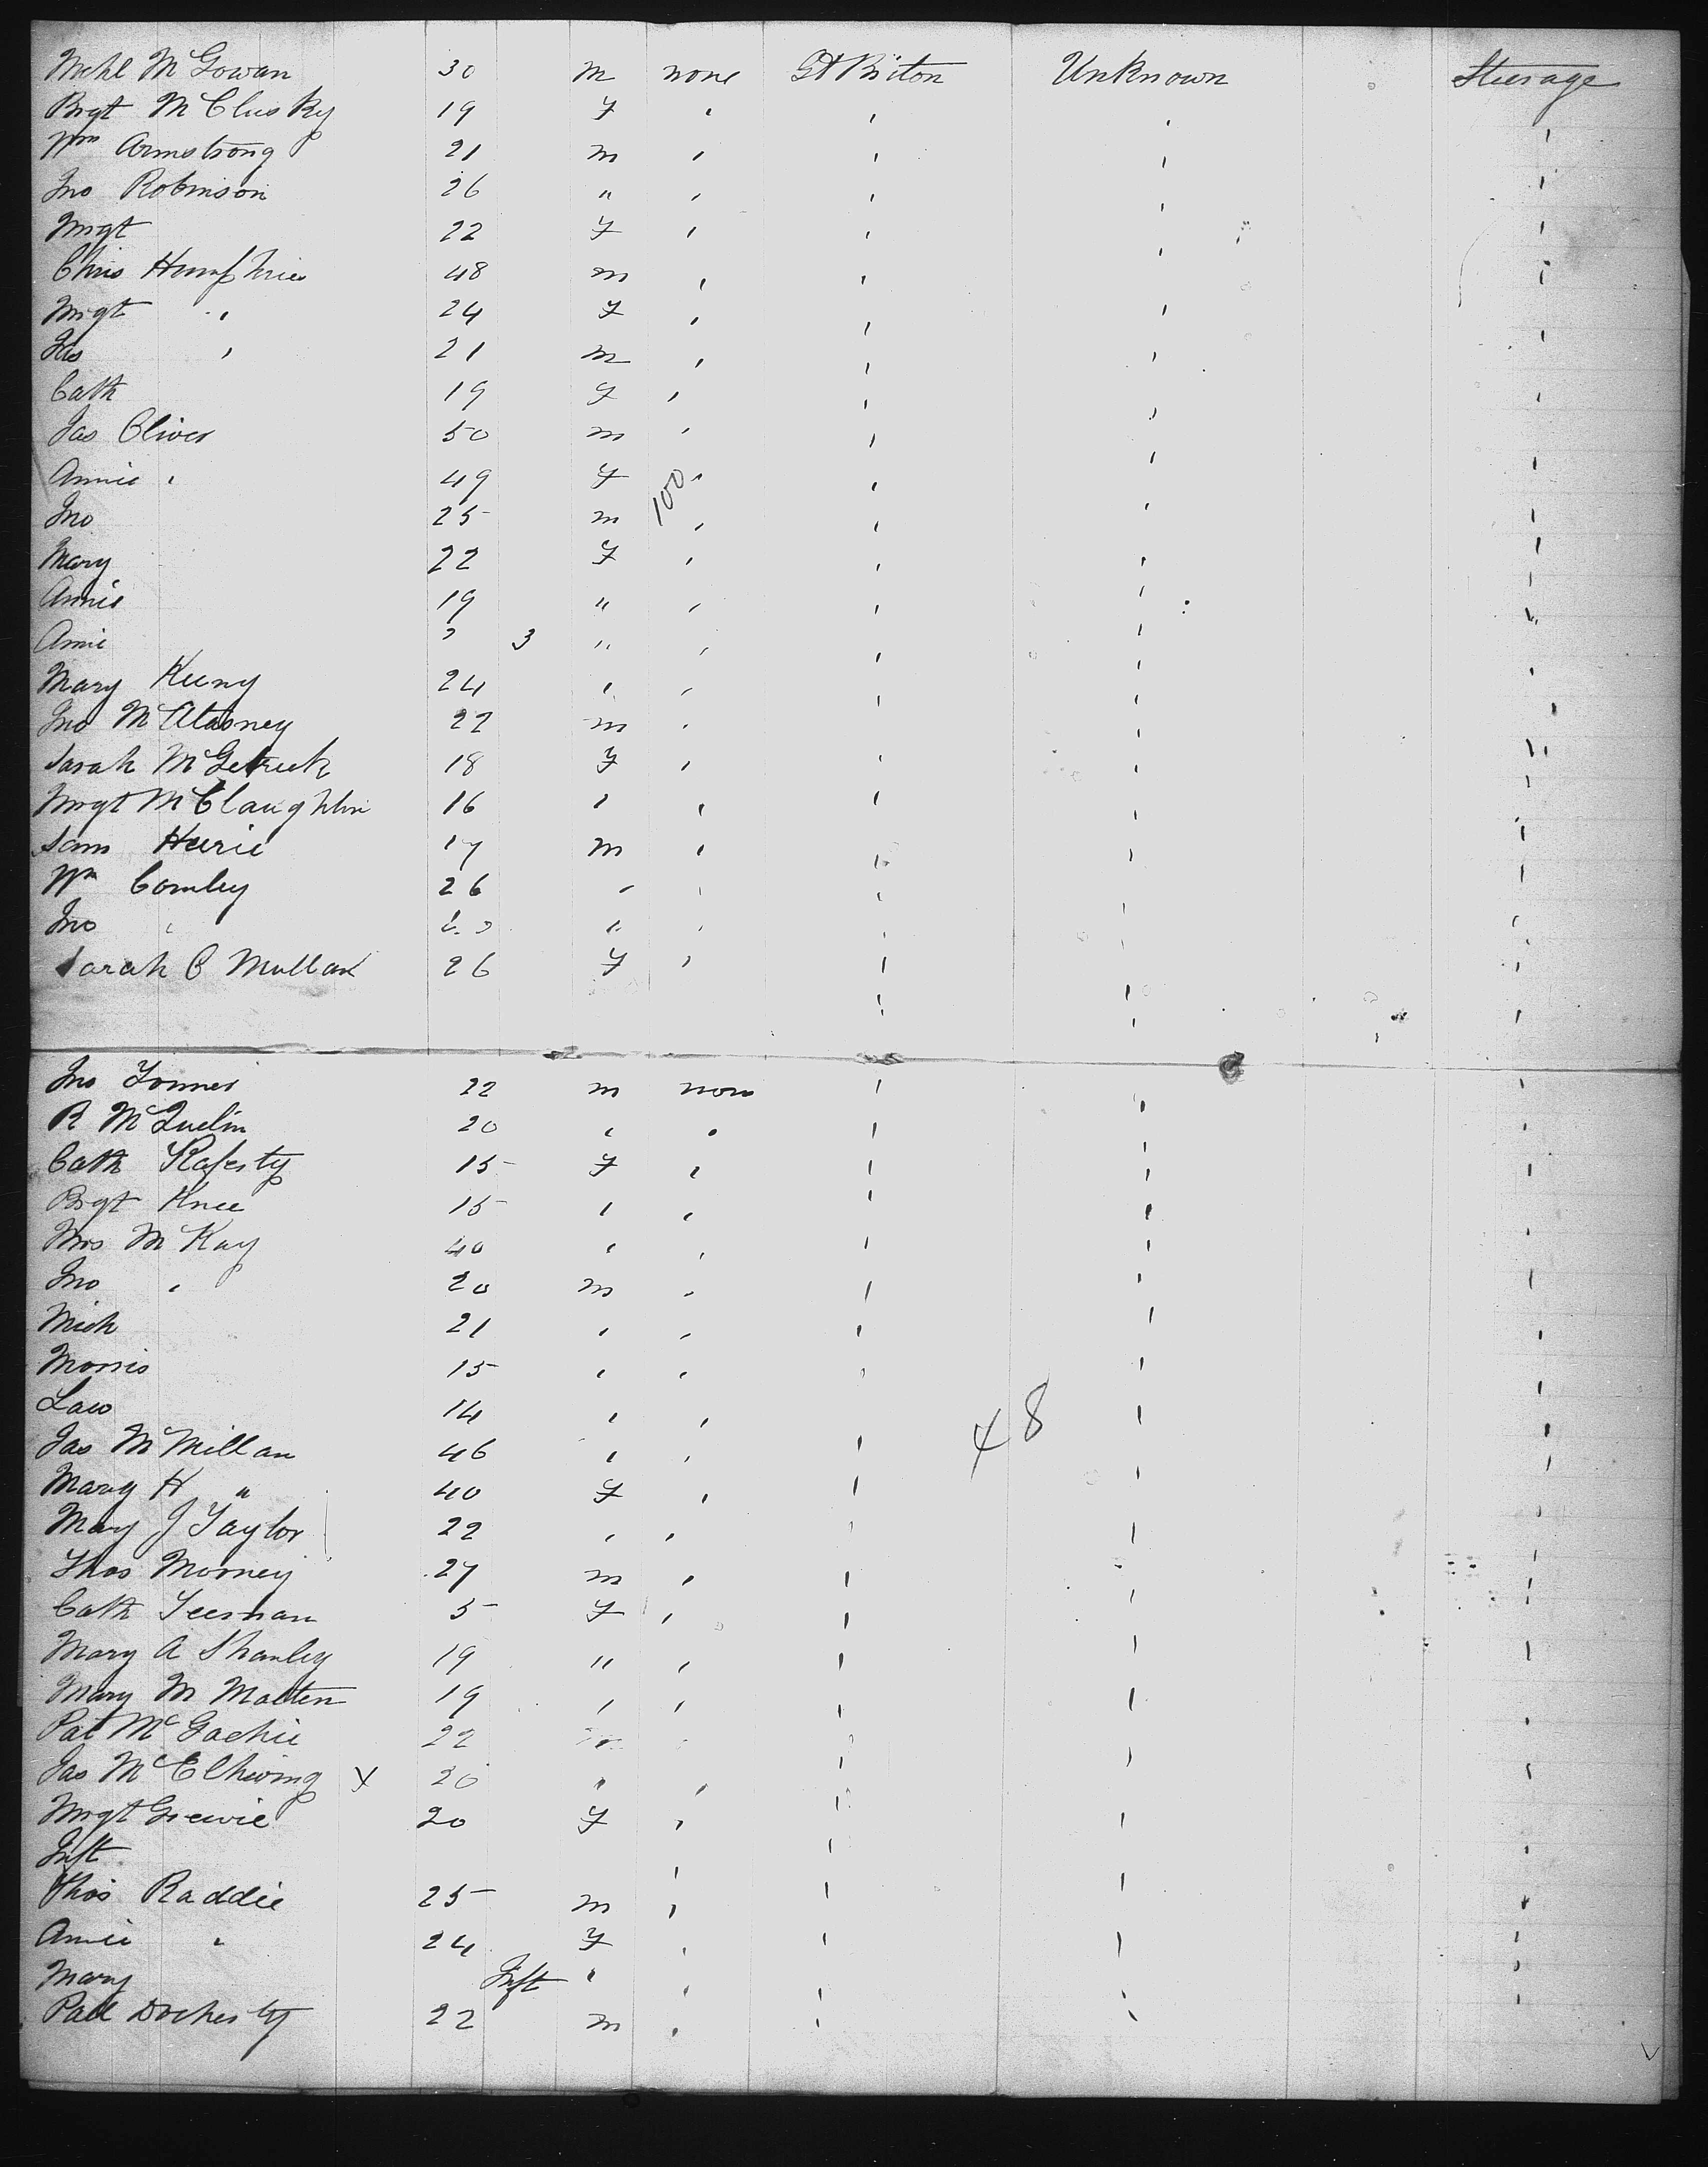 Mchl McGowan 30 m none Gt Briton Unknown Steerage
Brgt McClusky 19 F
Wm Armstrong 21 m
Jno Robinson 26 "
Mrgt 22 F
Chris Humphries 48 m
Mrgt " 24 F
Jas " 21 m
Cath 19 F
Jas Oliver 50 m
Annie " 49 F 100
Jno 25 m
Mary 22 F
Annie 19 "
Amie 3 "
Mary 24 "
Jno McAtasney 22 m
Sarah McGetrick 18 F
Mrgt McClaughlin 16 "
Sam 17 m
Wm Comley 26 "
Jno " "
Sarah C Mullan 26 F
Jno 22 m none
R 20 "
Cath Raferty 15 F
Brgt Knee 15 "
Mrs McKay 40 "
Jno " 20 m
Mich 21 "
Morris 15 "
Law 14 " 48
Jas McMillan 46 "
Mary H " 40 F
Mary J Taylor 22 "
Thos Mooney 27 m
Cath 5 F
Mary A Shanley 19 "
Mary 19 "
Pat McGachie 22
Jas x 20 "
Mrgt 20 F
Inft
Thos Raddie 25 m
Amie " 24 F
Mary Inft "
Docherty 22 m